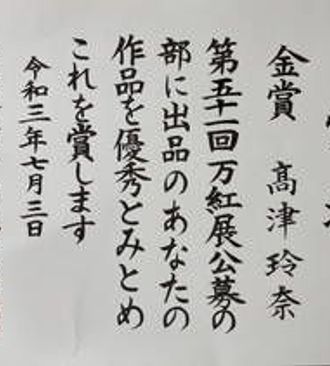 金賞 髙津玲奈
第五十一回万紅展公募の
部に出品のあなたの
作品を優秀とみとめ
これを賞します
令和三年七月三日